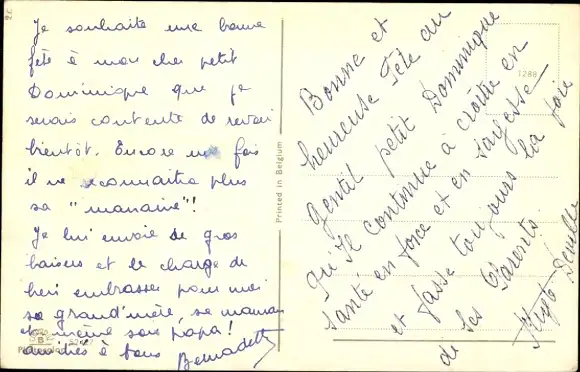 Je souhaite une bonne
fête à mon cher petit
Dominique que je
serais contente de revoir
bientôt. Encore une fois
il ne reconnaitra plus
sa "marraine"!
Je lui envoie de gros
baisers et le charge de
bien embrasser pour moi
sa grand'mère, sa maman
et même son papa!
amitiés à tous Bernadette
Printed in Belgium
1288
Bonne et
heureuse Fête au
Gentil petit Dominique
Qu'Il continue à croître en
santé en force et en sagesse
et fasse toujours la joie
de ses Parents.